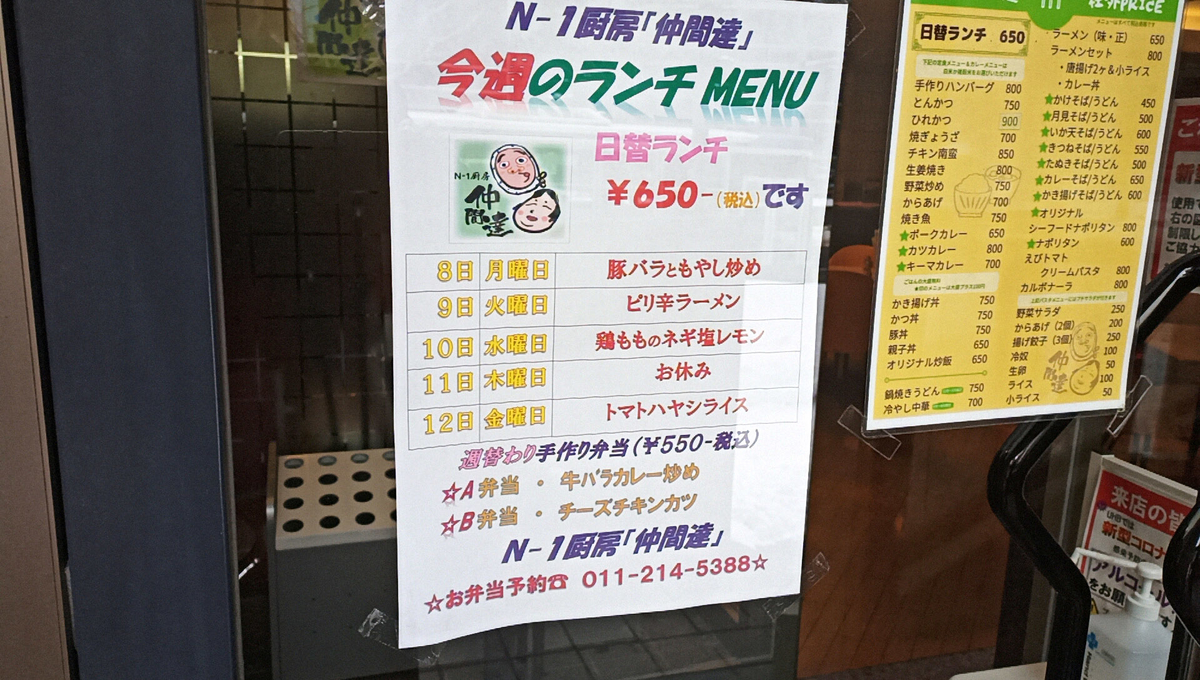 N-1厨房「仲間達」
今週のランチMENU
N-1厨房
仲間達
日替ランチ
￥650-(税込)です
8日 月曜日 豚バラともやし炒め
9日 火曜日 ピリ辛ラーメン
10日 水曜日 鶏もものネギ塩レモン
11日 木曜日 お休み
12日 金曜日 トマトハヤシライス
週替わり手作り弁当(￥550-税込)
☆A弁当 ・ 牛バラカレー炒め
☆B弁当 ・ チーズチキンカツ
N-1厨房「仲間達」
☆お弁当予約☎ 011-214-5388☆
PRICE
日替ランチ 650
手作りハンバーグ 800
とんかつ 750
ひれかつ 900
焼ぎょうざ 700
チキン南蛮 850
生姜焼き 800
野菜炒め 750
からあげ 700
焼き魚 750
★ポークカレー 650
★カツカレー 800
★キーマカレー 700
かき揚げ丼 750
かつ丼 750
豚丼 750
親子丼 650
オリジナル炒飯 650
鍋焼きうどん 750
冷やし中華 700
ラーメン(味・正) 650
ラーメンセット 800
・唐揚げ2ヶ＆小ライス
・カレー丼
★かけそば/うどん 450
★月見そば/うどん 500
★いか天そば/うどん 600
★きつねそば/うどん 550
★たぬきそば/うどん 500
★カレーそば/うどん 650
★かき揚げそば/うどん 600
★オリジナル
シーフードナポリタン 800
★ナポリタン 600
えびトマト
クリームパスタ 800
カルボナーラ 800
野菜サラダ 250
からあげ(2個) 200
揚げ餃子(3個) 250
冷奴 100
生卵 50
ライス 100
小ライス 50
仲間達
来店の皆
UHBでは、
新型コロナ
アルコール
をお願